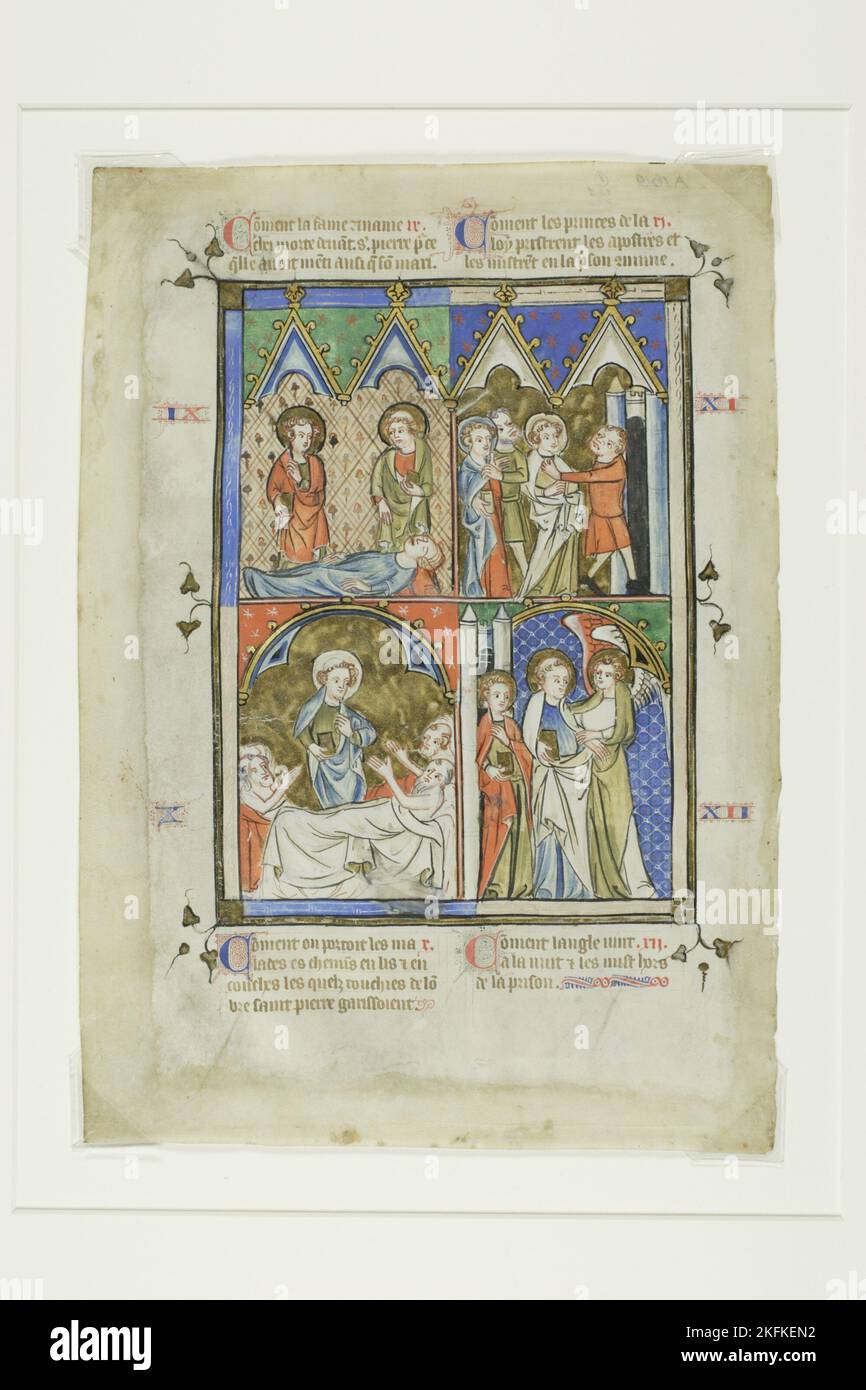 Coment la fame ananie IX.
chei morte deuant. s. pierre p ce
qlle auoit menti ausi q son mari.
Coment les princes de la XI.
loy pristrent les apostres et
les mistrent en la pson
IX
XI
X
XII
Coment on portoit les ma X.
lades es chemins en lis & en
couches les quex touchies de lo
bre saint pierre garissoient
Coment langle vint. XII.
a la nuit & les mist hors
de la prison.
alamy
Image ID: 2KFKEN2
www.alamy.com